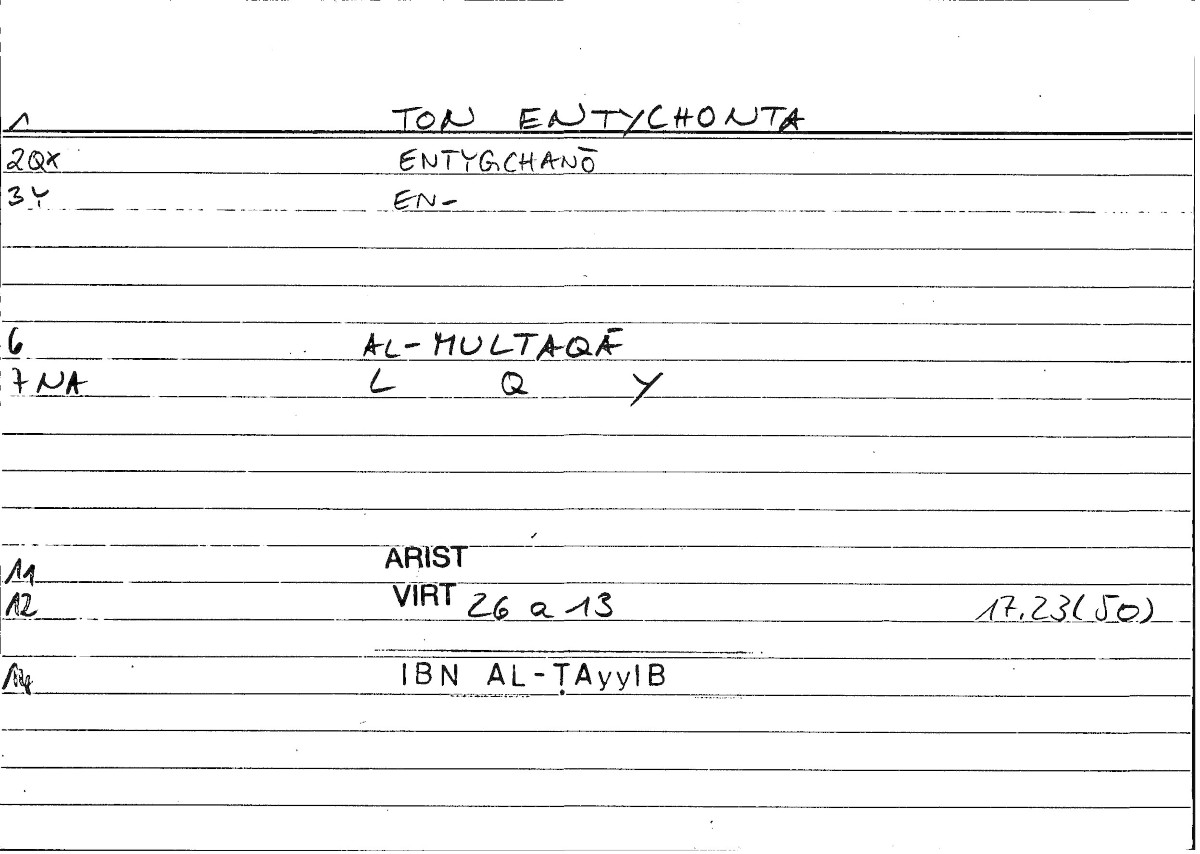 1 TON ENTYCHONTA
2QX ENTYGCHANŌ
3Y EN-
6 AL-MULTAQĀ
7NA L Q Y
11 ARIST
12 VIRT 26 a 13 17.23(50)
14 IBN AL-ṬAyyIB